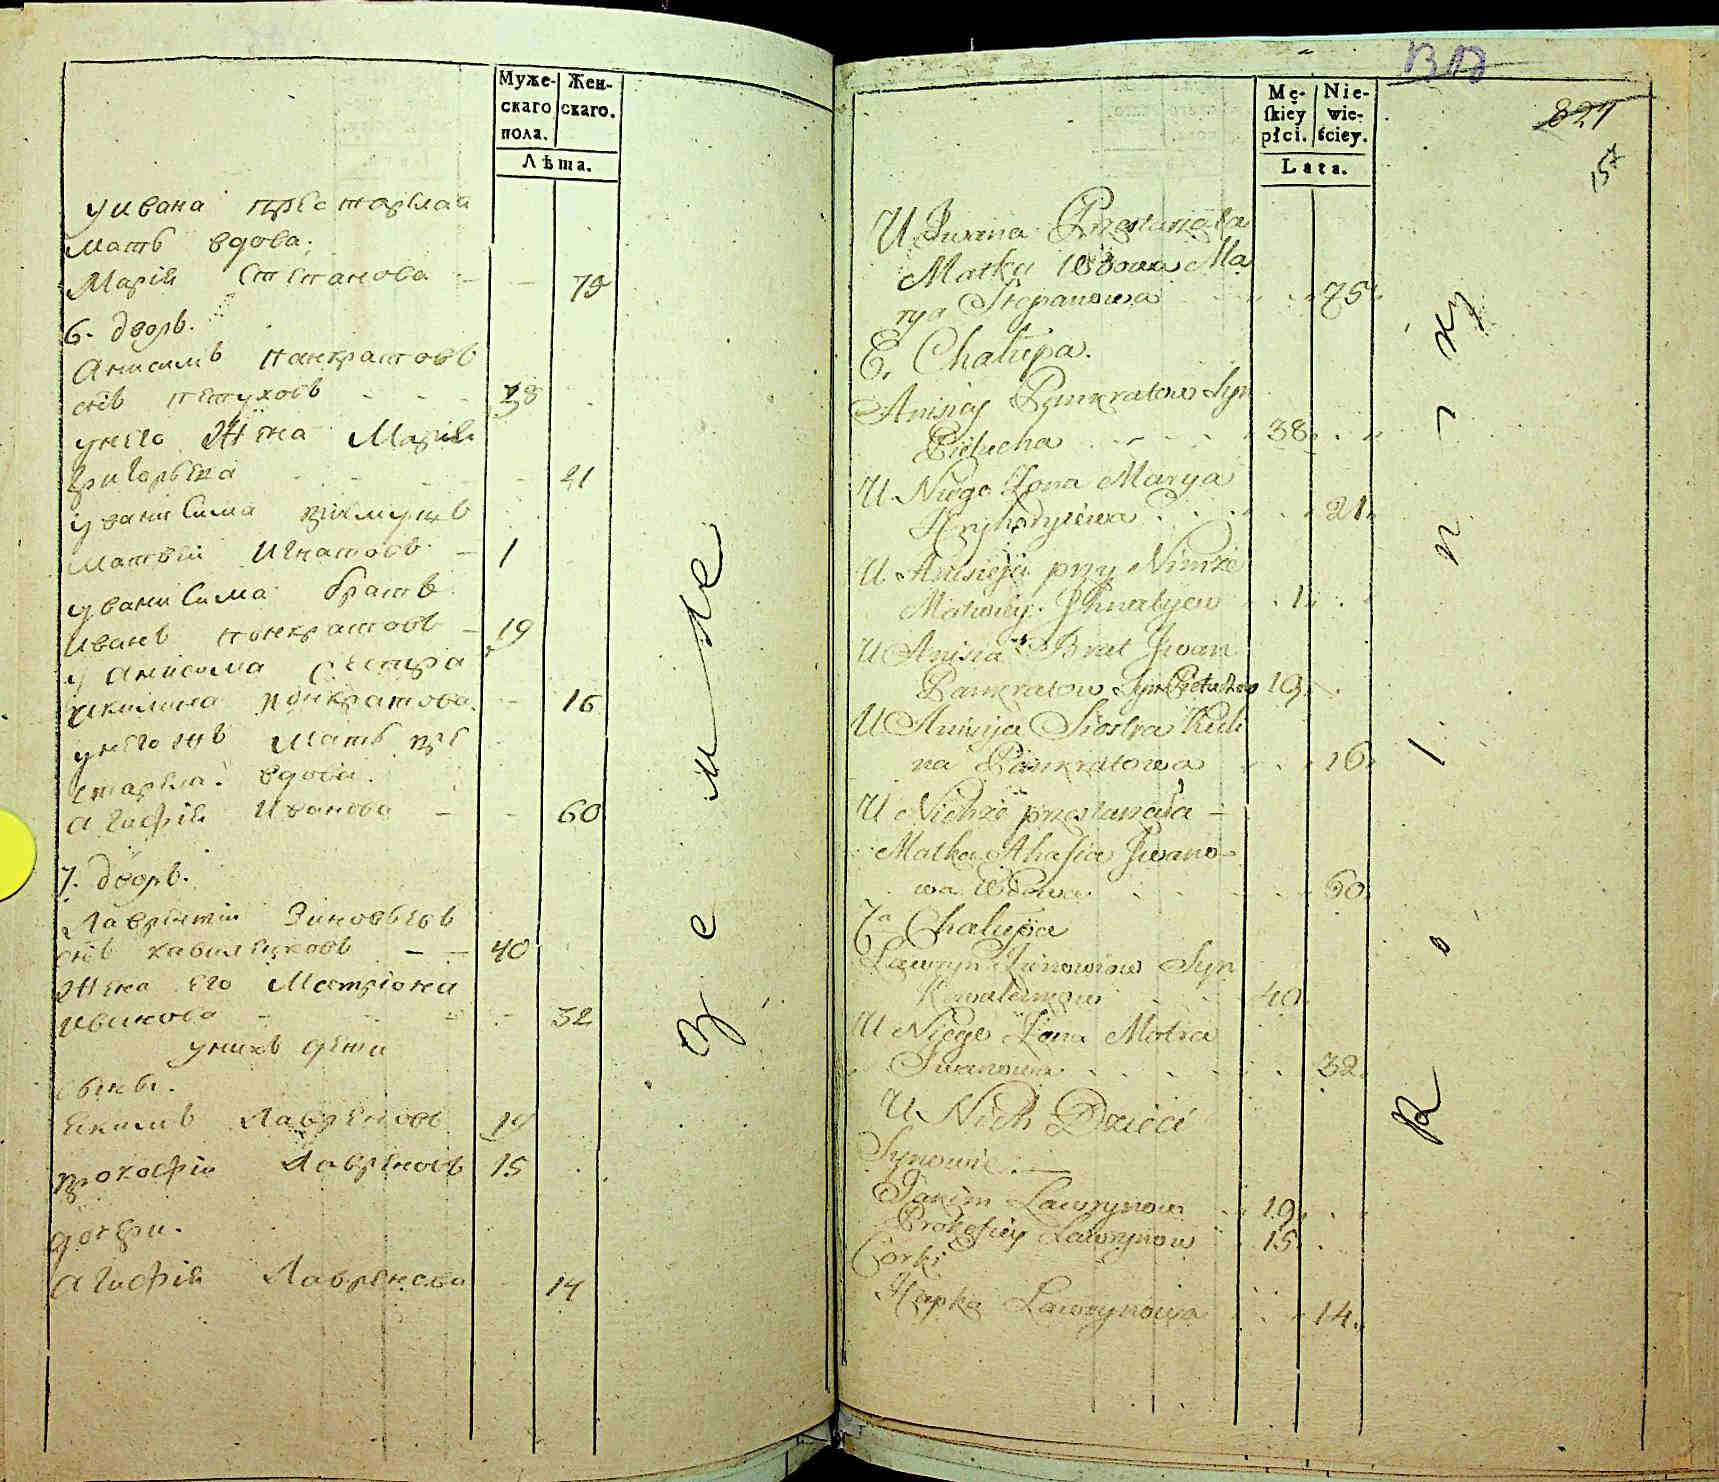 Муже- Жен-
скаго скаго.
пола.
Лѣта.
у Ивана престарелая
мать вдова.
Марія Степанова 75
6. дворъ.
Анисимъ Панкратовъ
снъ Петуховъ 38
у него Жена Марія
Григорьева 21
у Анисима
Матвѣй Игнатовъ 1
у Анисима братъ
Иванъ Понкратовъ 19
у Анисима сестра
Акилина Понкратова 16
у него жъ мать пре
старела вдова
Агафія Иванова 60
7. дворъ.
Лаврентій Зиновьевъ
снъ Ковалензовъ 40
Жена его Матріона
Иванова 32
у нихъ дети
сыны.
Екимъ Лавреновъ 19
Прокофій Лавреновъ 15
дочери.
Агафія Лавренова 14
земляне
Mę- Nie-
skiey wie-
płci. ściey.
Lata.
824
157
U Jwana Przestarzała
Matka Wdowa Ma
rya Stepanowa 75
6. Chałupa.
Anisiej Pankratow Syn
Pietucha 38
U Niego Żona Marya
Hryhoryiewa 21
U Anisieja przy
Matwiej Jhnatyew 1
U Anisia Brat Jwan
Pankratow Syn Pietuchow 19
U Anisija Siostra Kuli
na Pankratowa 16
U Nichże przestarzała
Matka Ahafia Jwano-
wa Wdowa 60
7a Chałupa
Lawryn Zinowiow Syn
Kowalenzow 40
U Niego Żona Motra
Jwanowna 32
U Nich Dzieci
Synowie.
Jakim Lawrynow 19
Prokofiey Lawrynow 15
Corki
Hapka Lawrynowa 14